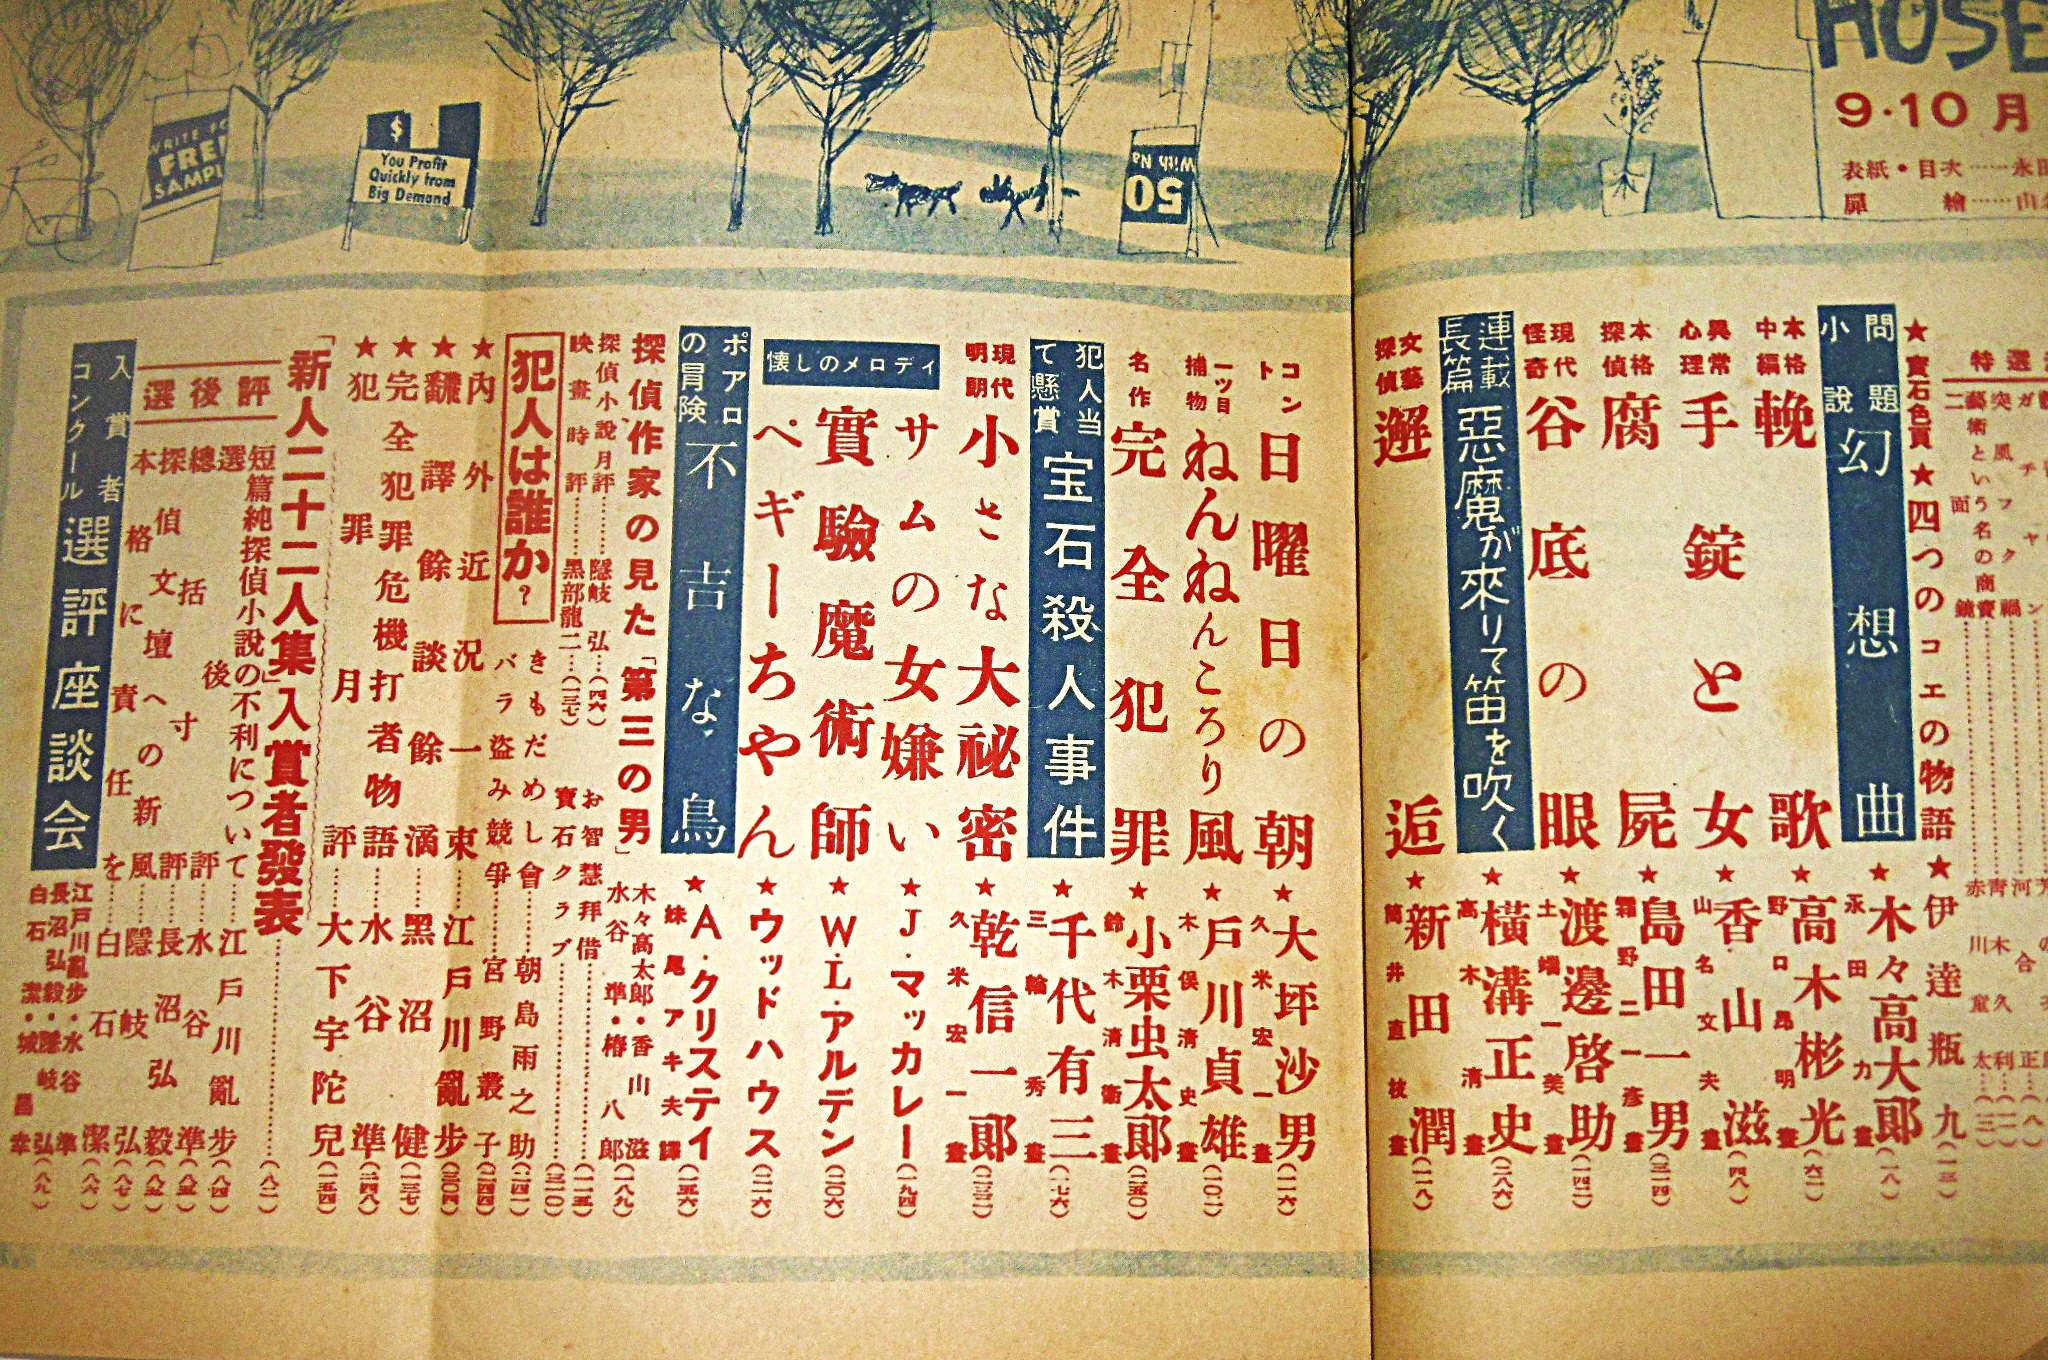 HOSE
9・10月
表紙・目次……永田
扉 繪……山
WRITE FO
FREE
SAMPL
$
You Profit
Quickly from
Big Demand
With Na
50
特選
★寶石色頁★四つのコエの物語★伊達瓶九(一三)
問題小說 幻想曲★木々高太郎(一八)
永田力畫
本格中編 輓歌★高木彬光(六二)
野口昂明畫
異常心理 手錠と女★香山滋(四八)
山名文夫畫
本格探偵 腐屍★島田一男(三一四)
霜野二一彦畫
現代怪奇 谷底の眼★渡邊啓助(一四二)
土端一美畫
連載長篇 惡魔が來りて笛を吹く★橫溝正史(二八六)
高木清畫
文藝探偵 邂逅★新田潤(一二八)
筒井直枝畫
コント 日曜日の朝★大坪沙男(一一六)
久米宏一畫
一ッ目捕物 ねんねんころり風★戶川貞雄(一〇二)
木俣清史畫
名作 完全犯罪★小栗虫太郎(二五〇)
鈴木清衞畫
犯人当て懸賞 宝石殺人事件★千代有三(一七六)
三輪秀畫
現代明朗 小さな大祕密★乾信一郎(二三二)
久米宏一畫
懐しのメロディ
サムの女嫌い★J・マッカレー(一九四)
實驗魔術師★W・L・アルデン(二〇六)
ペギーちやん★ウッドハウス(二一六)
ポアロの冒険 不吉な鳥★A・クリスティ(一五六)
妹尾アキ夫譯
探偵作家の見た「第三の男」木々高太郎・香山滋 水谷準・椿八郎(一八九)
探偵小說月評………隱岐弘…(四六)
映畫時評………黑部龍二…(一三七)
お智慧拜借………(一一五)
寶石クラブ………(三一〇)
犯人は誰か?
きもだめし會……朝島雨之助(二四二)
バラ盗み競爭……宮野叢子(二四四)
★內外近況一束…江戶川亂步(三〇四)
★飜譯餘談餘滴…黑沼健(一三七)
★完全犯罪危機打者物語…水谷準(二四八)
★犯罪月評…大下宇陀兒(一五四)
「新人二十二人集」入賞者發表………(八二)
選後評
短篇純探偵小說の不利について…江戶川亂步(八四)
選後寸評…水谷準(八五)
總括評…長沼弘毅(八五)
探偵文壇への新風…隱岐弘(八七)
本格に責任を…白石潔(八六)
入賞者コンクール 選評座談会
江戶川亂步・水谷準
長沼弘毅・隱岐弘
白石潔・城昌幸(八九)